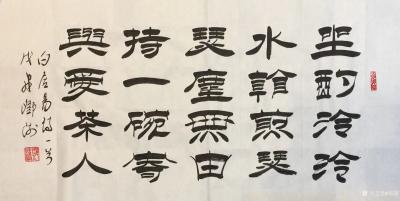 坐酌泠泠
水看煎瑟
瑟塵無由
持一碗寄
與愛茶人
白居易詩一首
戊戌